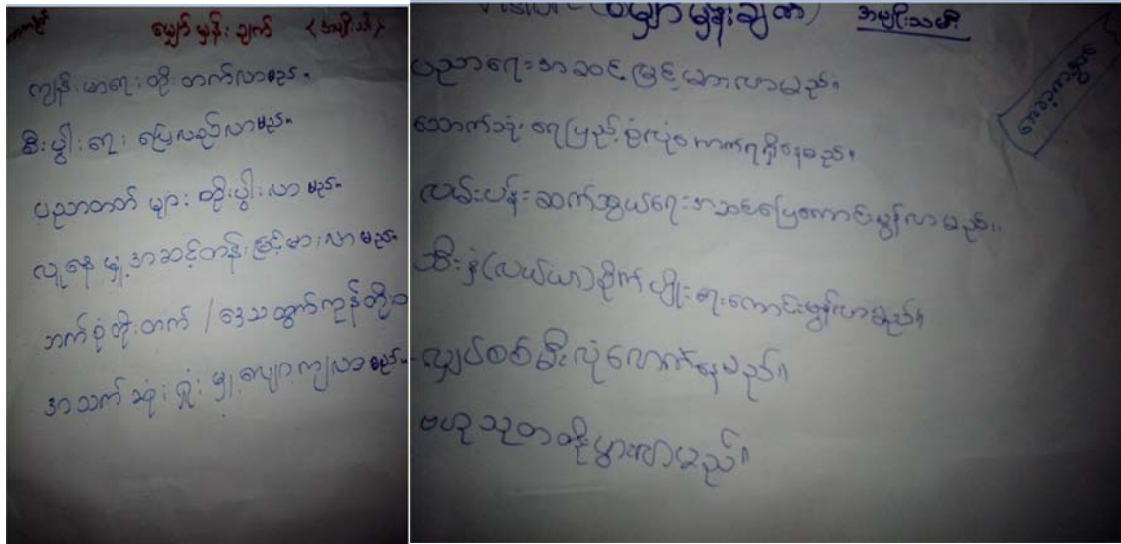 မျှော်မှန်းချက် (အမျိုးသမီး)
ကျန်းမာရေး တိုးတက်လာမည်။
စီးပွါးရေး ပြေလည်လာမည်။
ပညာတတ်များ တိုးပွါးလာမည်။
လူနေမှု့အဆင့်တန်းမြင့်မားလာမည်။
ဘက်စုံတိုးတက် / ဒေသထွက်ကုန်တိုး
အသက်ဆုံးရှုံးမှု့လျော့ကျလာမည်။
(မျှော်မှန်းချက်) အမျိုးသမီး
ပညာရေးအဆင့်မြင့်မားလာမည်။
သောက်သုံးရေပြည့်စုံလုံလောက်ရရှိနေမည်။
လမ်းပန်းဆက်သွယ်ရေးအဆင်ပြေကောင်းမွန်လာမည်။
သီးနှံ(လယ်ယာ)စိုက်ပျိုးရေးကောင်းမွန်လာမည်။
လျှပ်စစ်မီးလုံလောက်နေမည်။
ဗဟုသုတတိုးပွားလာမည်။